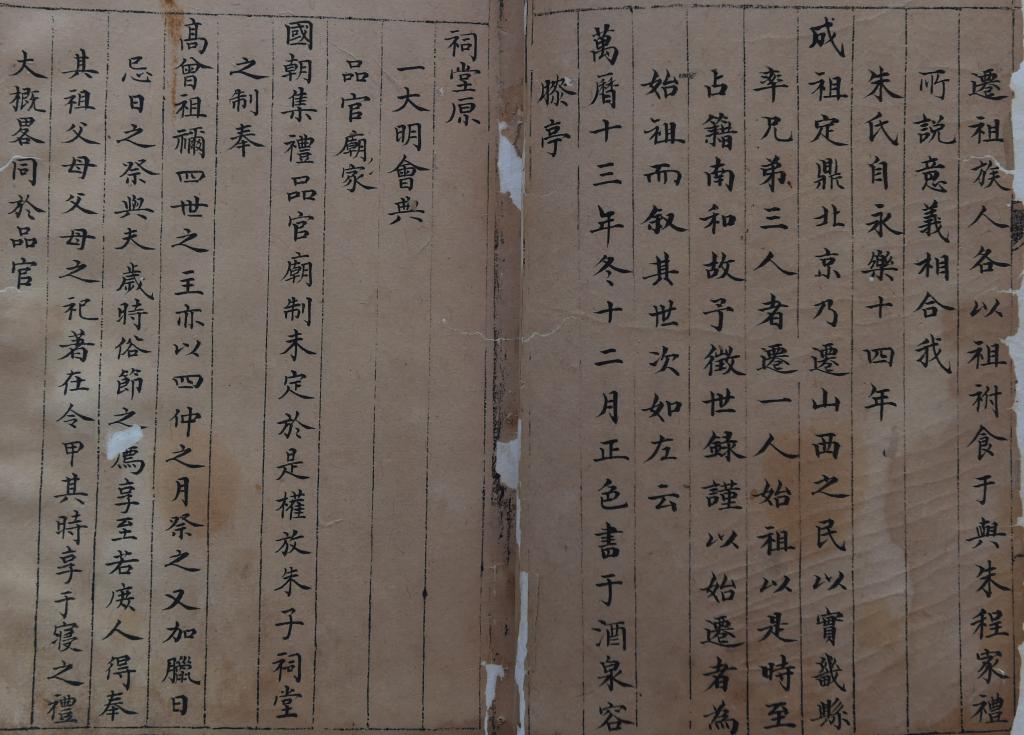 遷祖族人各以祖祔食于與朱程家禮
所説意義相合我
朱氏自永樂十四年
成祖定鼎北京乃遷山西之民以實畿縣
率兄弟三人者遷一人始祖以是時至
占籍南和故予徵世録謹以始遷者為
始祖而叙其世次如左云
萬曆十三年冬十二月正色書于酒泉容
膫亭
祠堂原
一大明會典
品官廟家
國朝集禮品官廟制未定於是權放朱子祠堂
之制奉
髙曾祖禰四世之主亦以四仲之月祭之又加臘日
忌日之祭與夫歲時俗節之薦享至若庻人得奉
其祖父母父母之祀著在令甲其時享于寢之禮
大概畧同於品官